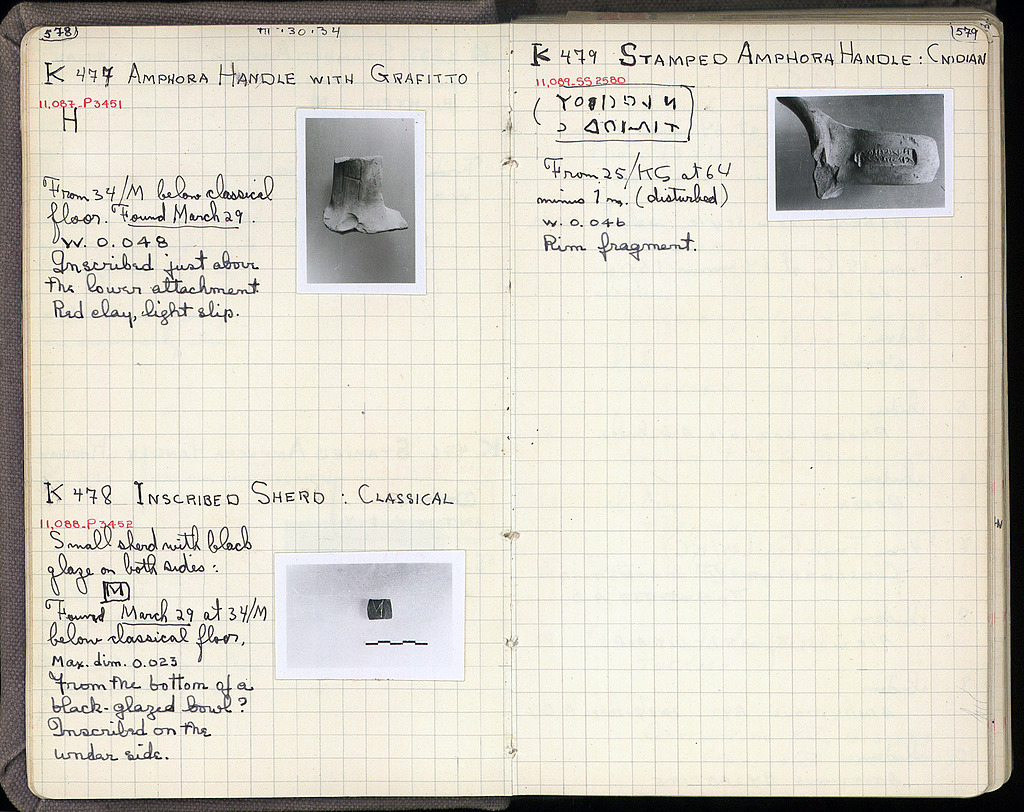 578)
III · 30 · 34
K 477 AMPHORA HANDLE WITH GRAFITTO
11,087-P3451
H
From 34/M below classical
floor. Found March 29.
W. 0.048
Inscribed just above
the lower attachment
Red clay, light slip.
K 478 INSCRIBED SHERD : CLASSICAL
11,088-P3452
Small sherd with black
glaze on both sides:
M
Found March 29 at 34/M
below classical floor.
Max. dim. 0.023
From the bottom of a
black-glazed bowl?
Inscribed on the
under side.
(579
K 479 STAMPED AMPHORA HANDLE : CNIDIAN
11,089-SS 2580
From 25/ΚΣ at 64
minus 1 m. (disturbed)
W. 0.046
Rim fragment.